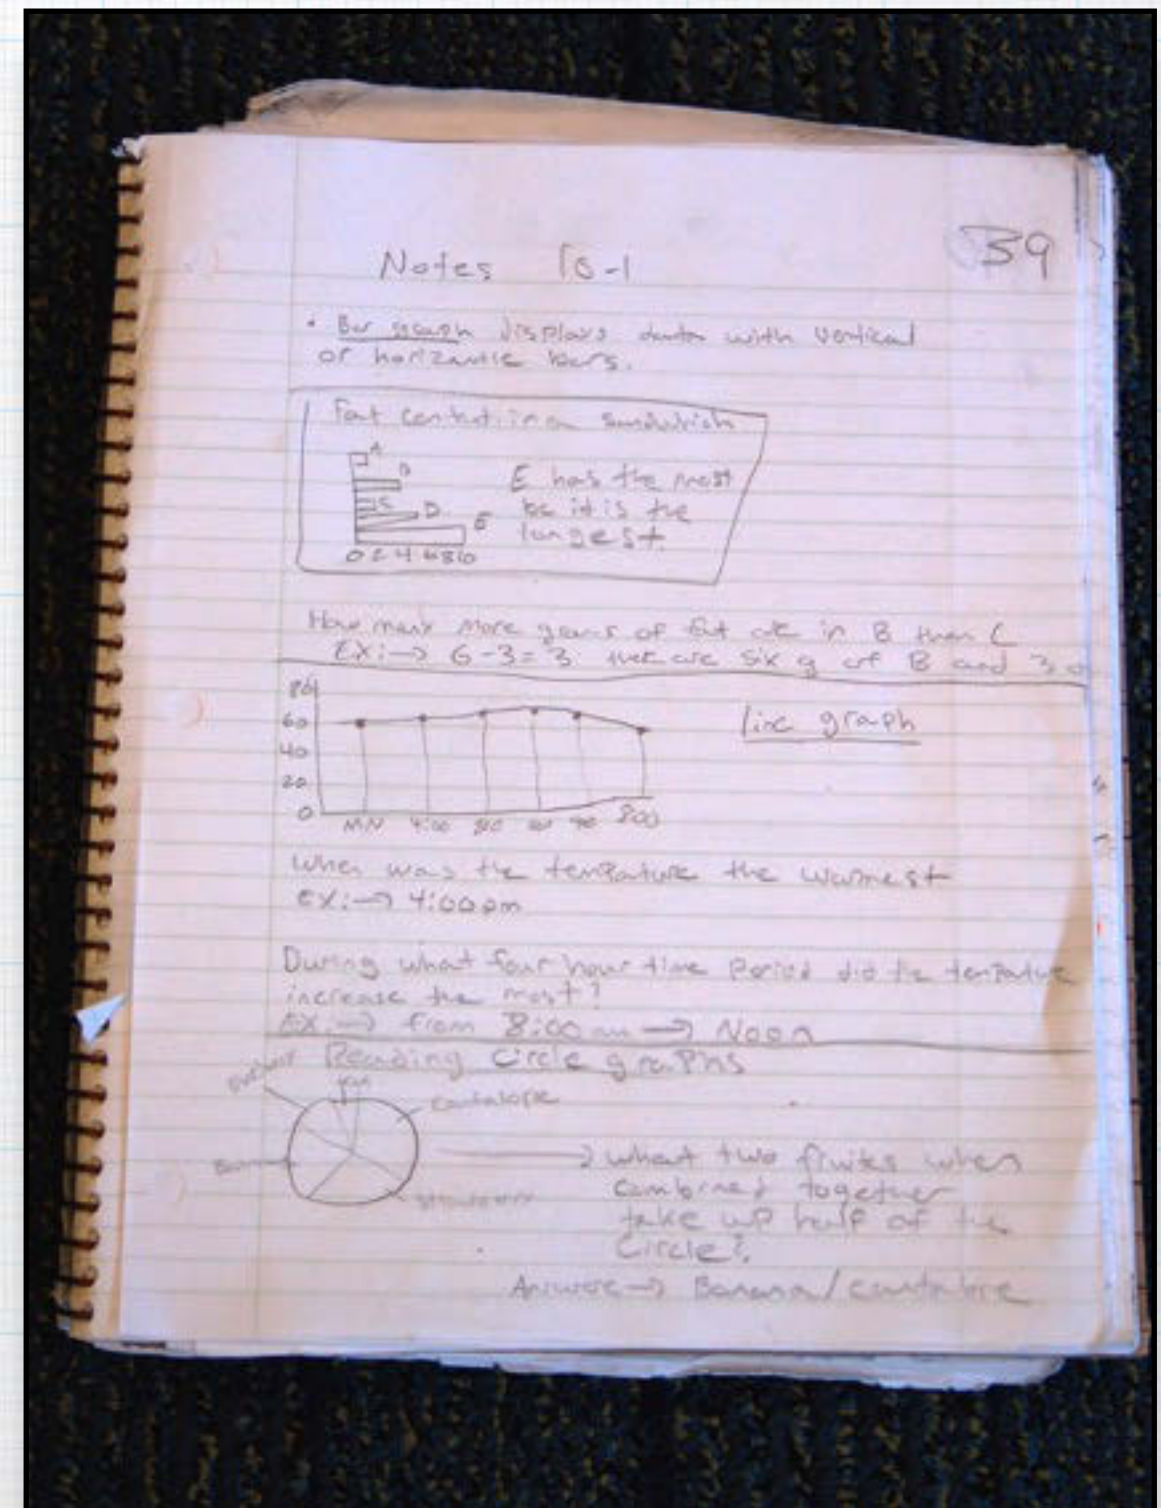 39
Notes 10-1
• Bar graph displays data with vertical
or horizantle bars.
Fat content in a sandwhich
A
B
C
D
E
E has the most
bc it is the
longest.
0 2 4 6 8 10
How many more grams of fat are in B than C
EX:→ 6-3=3 there are six g of B and 3
80
60
40
20
0
line graph
MN 4:00 8:00 4:00 8:00
When was the temPature the warmest
EX:→ 4:00pm
During what four hour time Period did the temPature
increase the most?
EX:→ from 8:00am → Noon
Reading Circle graPhs
cantalope
→ what two fruites when
combined together
take up half of the
Circle?
Answere→ Banana/cantalope